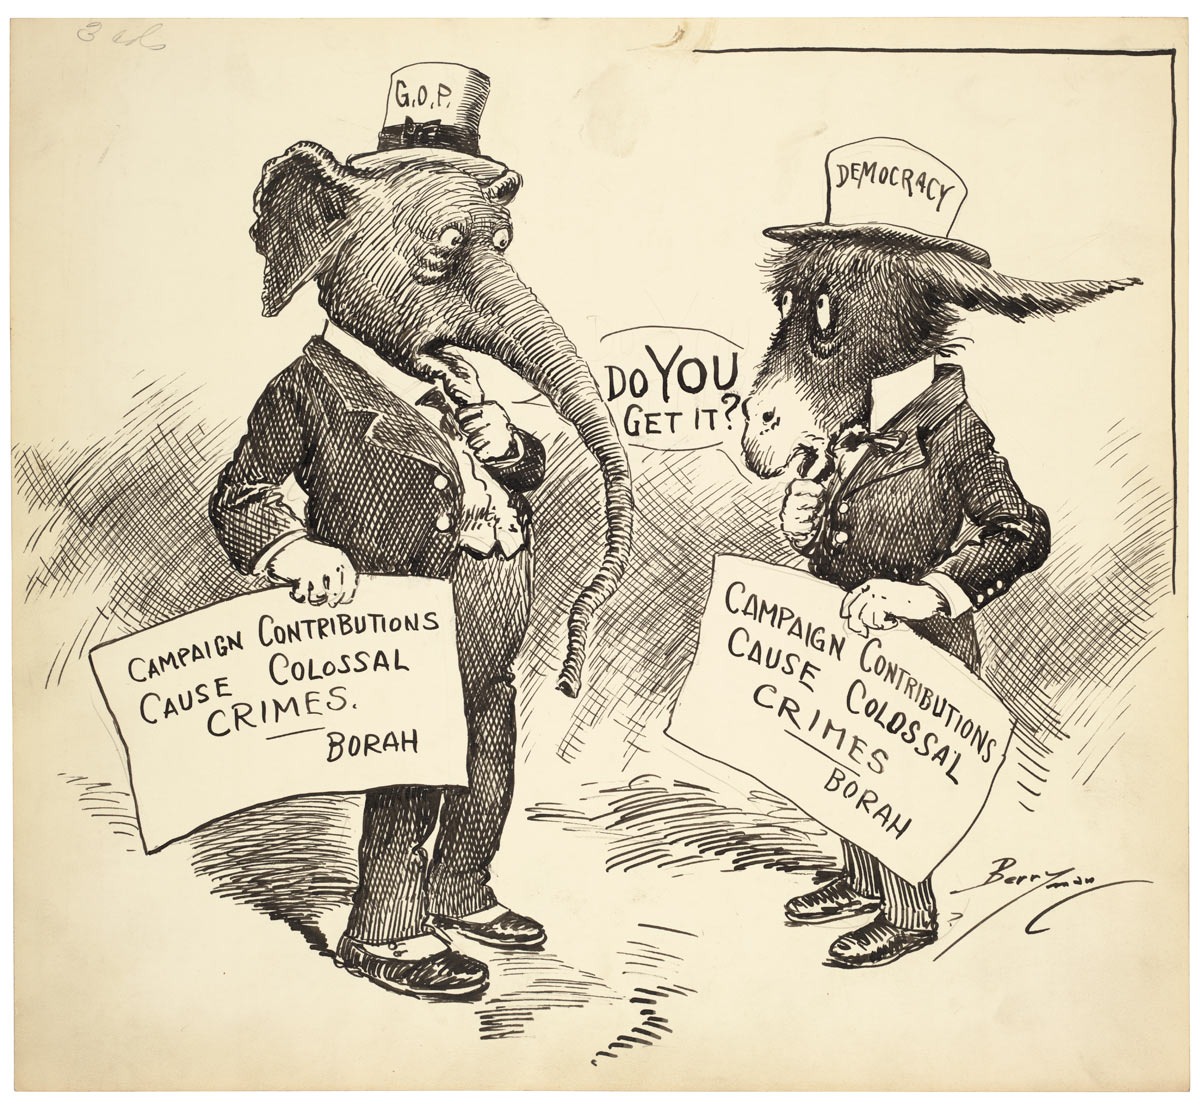 G.O.P.
DEMOCRACY
DO YOU
GET IT?
CAMPAIGN CONTRIBUTIONS
CAUSE COLOSSAL
CRIMES.
BORAH
CAMPAIGN CONTRIBUTIONS
CAUSE COLOSSAL
CRIMES
BORAH
Berryman